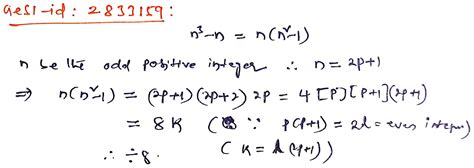 QeSI-id: 2833159:
n³-n = n(n²-1)
n be the odd positive integer ∴ n = 2p+1
⇒ n(n²-1) = (2p+1)(2p+2) 2p = 4[p][p+1](2p+1)
= 8K ( ∵ p(p+1) = 2λ = even integer)
∴ ÷8. (K = λ(2p+1))